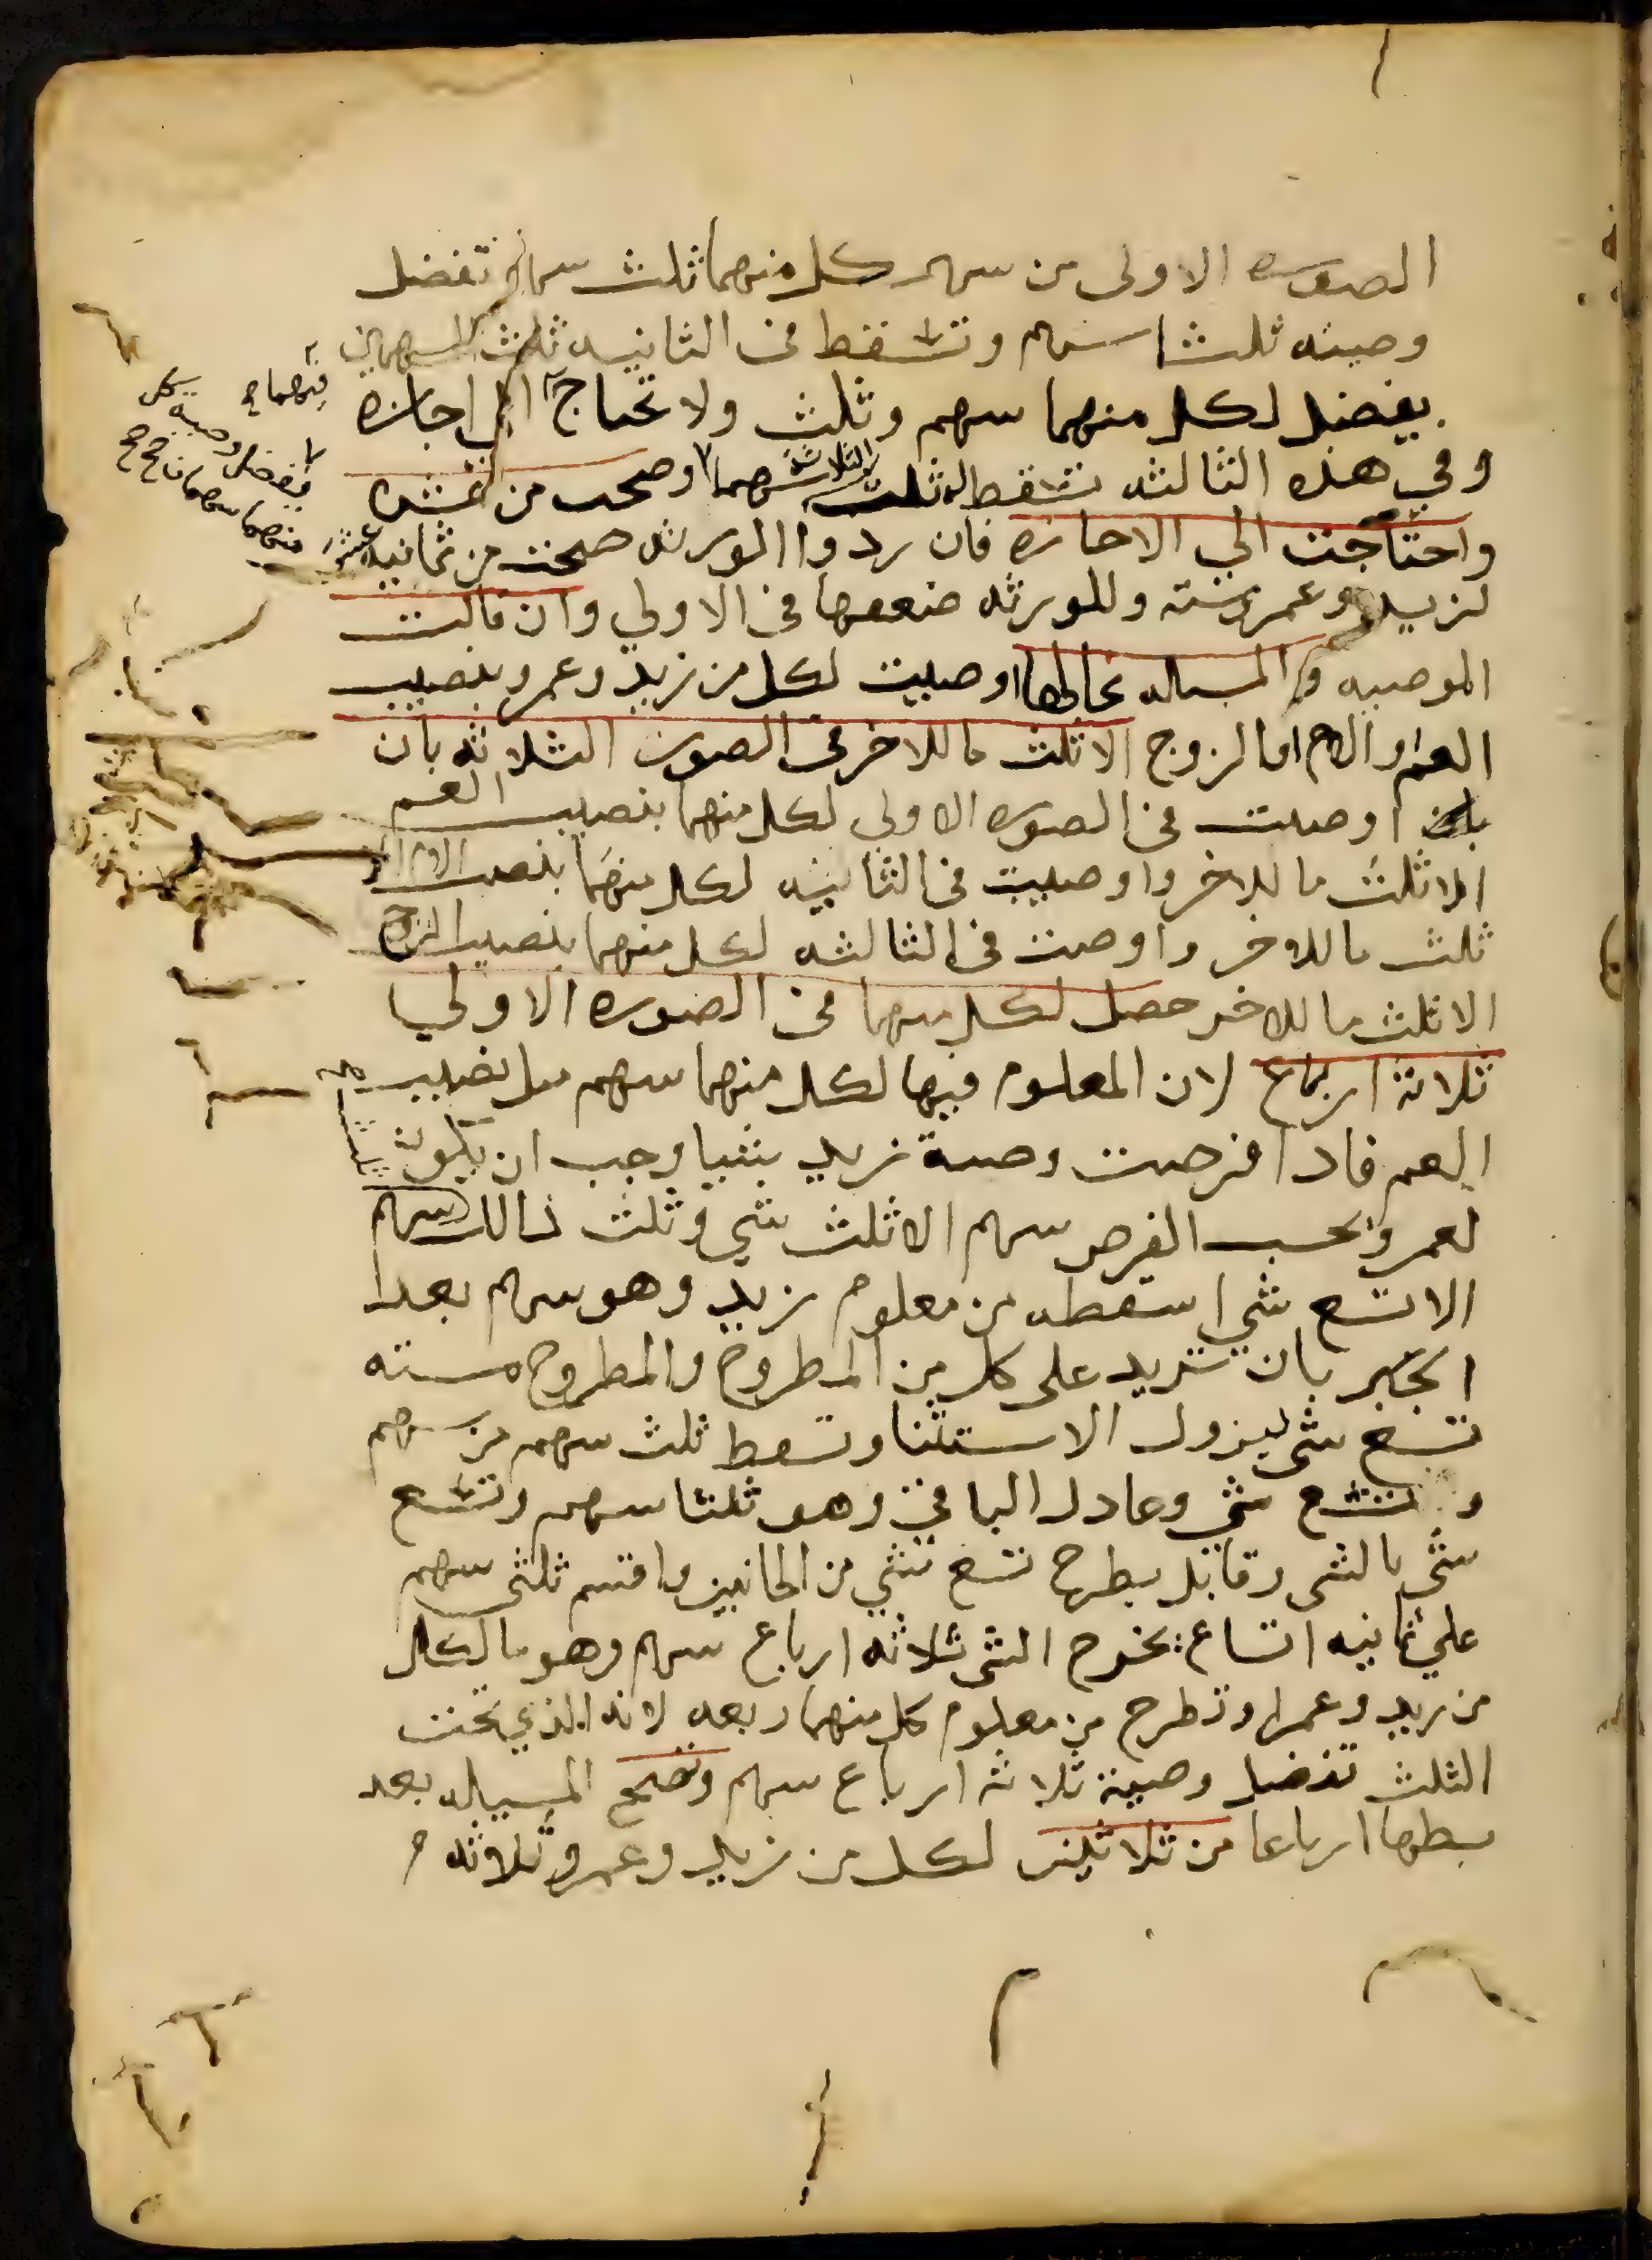 الصوره الاولى من سهم كل منهما ثلث سهم تفضل
وصيته ثلثا سهم وتسقط في الثانيه ثلث السهمين
يفضل لكل منهما سهم وثلث ولا تحتاج الى اجازه
وفي هذه الثالثه تسقط ثلث الثلاثة اسهم وصحت من عشره
واحتاجت الي الاجازه فان ردوا الورثه صحت من ثمانيه عشر
لزيد وعمرو سته وللورثه ضعفها في الاولي وان قالت
الموصيه والمساله بحالها اوصيت لكل من زيد وعمرو بنصيب
العم او الام او الزوج الا ثلث ما للاخر في الصور الثلاثه بان
اوصت في الصوره الاولي لكل منهما بنصيب العم
الا ثلث ما للاخر واوصيت في الثانيه لكل منهما بنصيب الام الا
ثلث ما للاخر واوصت في الثالثه لكل منهما بنصيب الزوج
الا ثلث ما للاخر حصل لكل منهما في الصوره الاولي
ثلاثة ارباع لان المعلوم فيها لكل منهما سهم مثل نصيب
العم فاذا فرضت وصية زيد شيا وجب ان يكون
لعمرو بحسب الفرض سهم الا ثلث شي وثلث ذالك سهم
الا تسع شي اسقطه من معلوم زيد وهو سهم بعد
الجبر بان تزيد على كل من المطروح والمطروح منه
تسع شي ليزول الاستثنا وتسقط ثلث سهم من سهم
وتسع شي وعادل الباقي وهو ثلثا سهم وتسع
شي بالشي وقابل بطرح تسع شي من الجانبين واقسم ثلثي سهم
علي ثمانيه اتساع يخرج الشي ثلاثه ارباع سهم وهو ما لكل
من زيد وعمرا وتطرح من معلوم كل منهما ربعه لانه الذي تحت
الثلث تفضل وصية ثلاثة ارباع سهم وتصح المسياله بعد
بسطها ارباعا من ثلاثين لكل من زيد وعمرو ثلاثه م
منهما
يفضل وصية كل
منهما سهمان صح صح